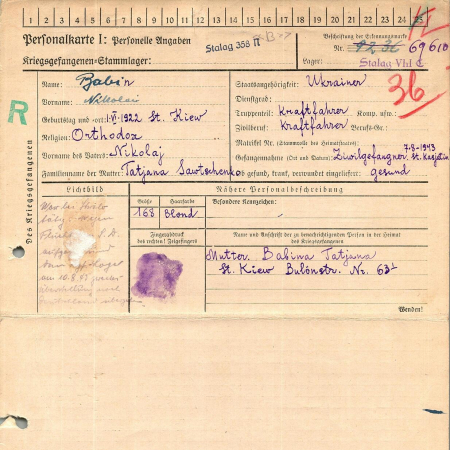 1 2 3 4 5 6 7 8 9 10 11 12 13 14 15 16 17 18 19 20 21 22 23 24 25
Personalkarte I: Personelle Angaben
Kriegsgefangenen-Stammlager: Stalag 358 П
Beschriftung der Erkennungsmarke
Nr. 69610
Lager: Stalag VIII C
36
R
Des Kriegsgefangenen
Name: Babin
Vorname: Nikolai
Geburtstag und -ort: 1.VI.1922 St. Kiew
Religion: Orthodox
Vorname des Vaters: Nikolaj
Familienname der Mutter: Tatjana Sawtschenko
Staatsangehörigkeit: Ukrainer
Dienstgrad:
Truppenteil: Kraftfahrer Komp. usw.:
Zivilberuf: Kraftfahrer Berufs-Gr.:
Matrikel Nr. (Stammrolle des Heimatstaates): 7-8-1943
Gefangennahme (Ort und Datum): Zivilgefangner
Ob gesund, krank, verwundet eingeliefert: gesund
Lichtbild
Nähere Personalbeschreibung
Größe Haarfarbe Besondere Kennzeichen:
168 Blond
Fingerabdruck
des rechten! Zeigefingers
Name und Anschrift der zu benachrichtigenden Person in der Heimat
des Kriegsgefangenen
Mutter. Babina Tatjana
St. Kiew Nr. 63